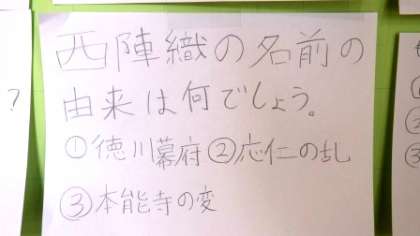 西陣織の名前の
由来は何でしょう。
①徳川幕府②応仁の乱
③本能寺の変
?